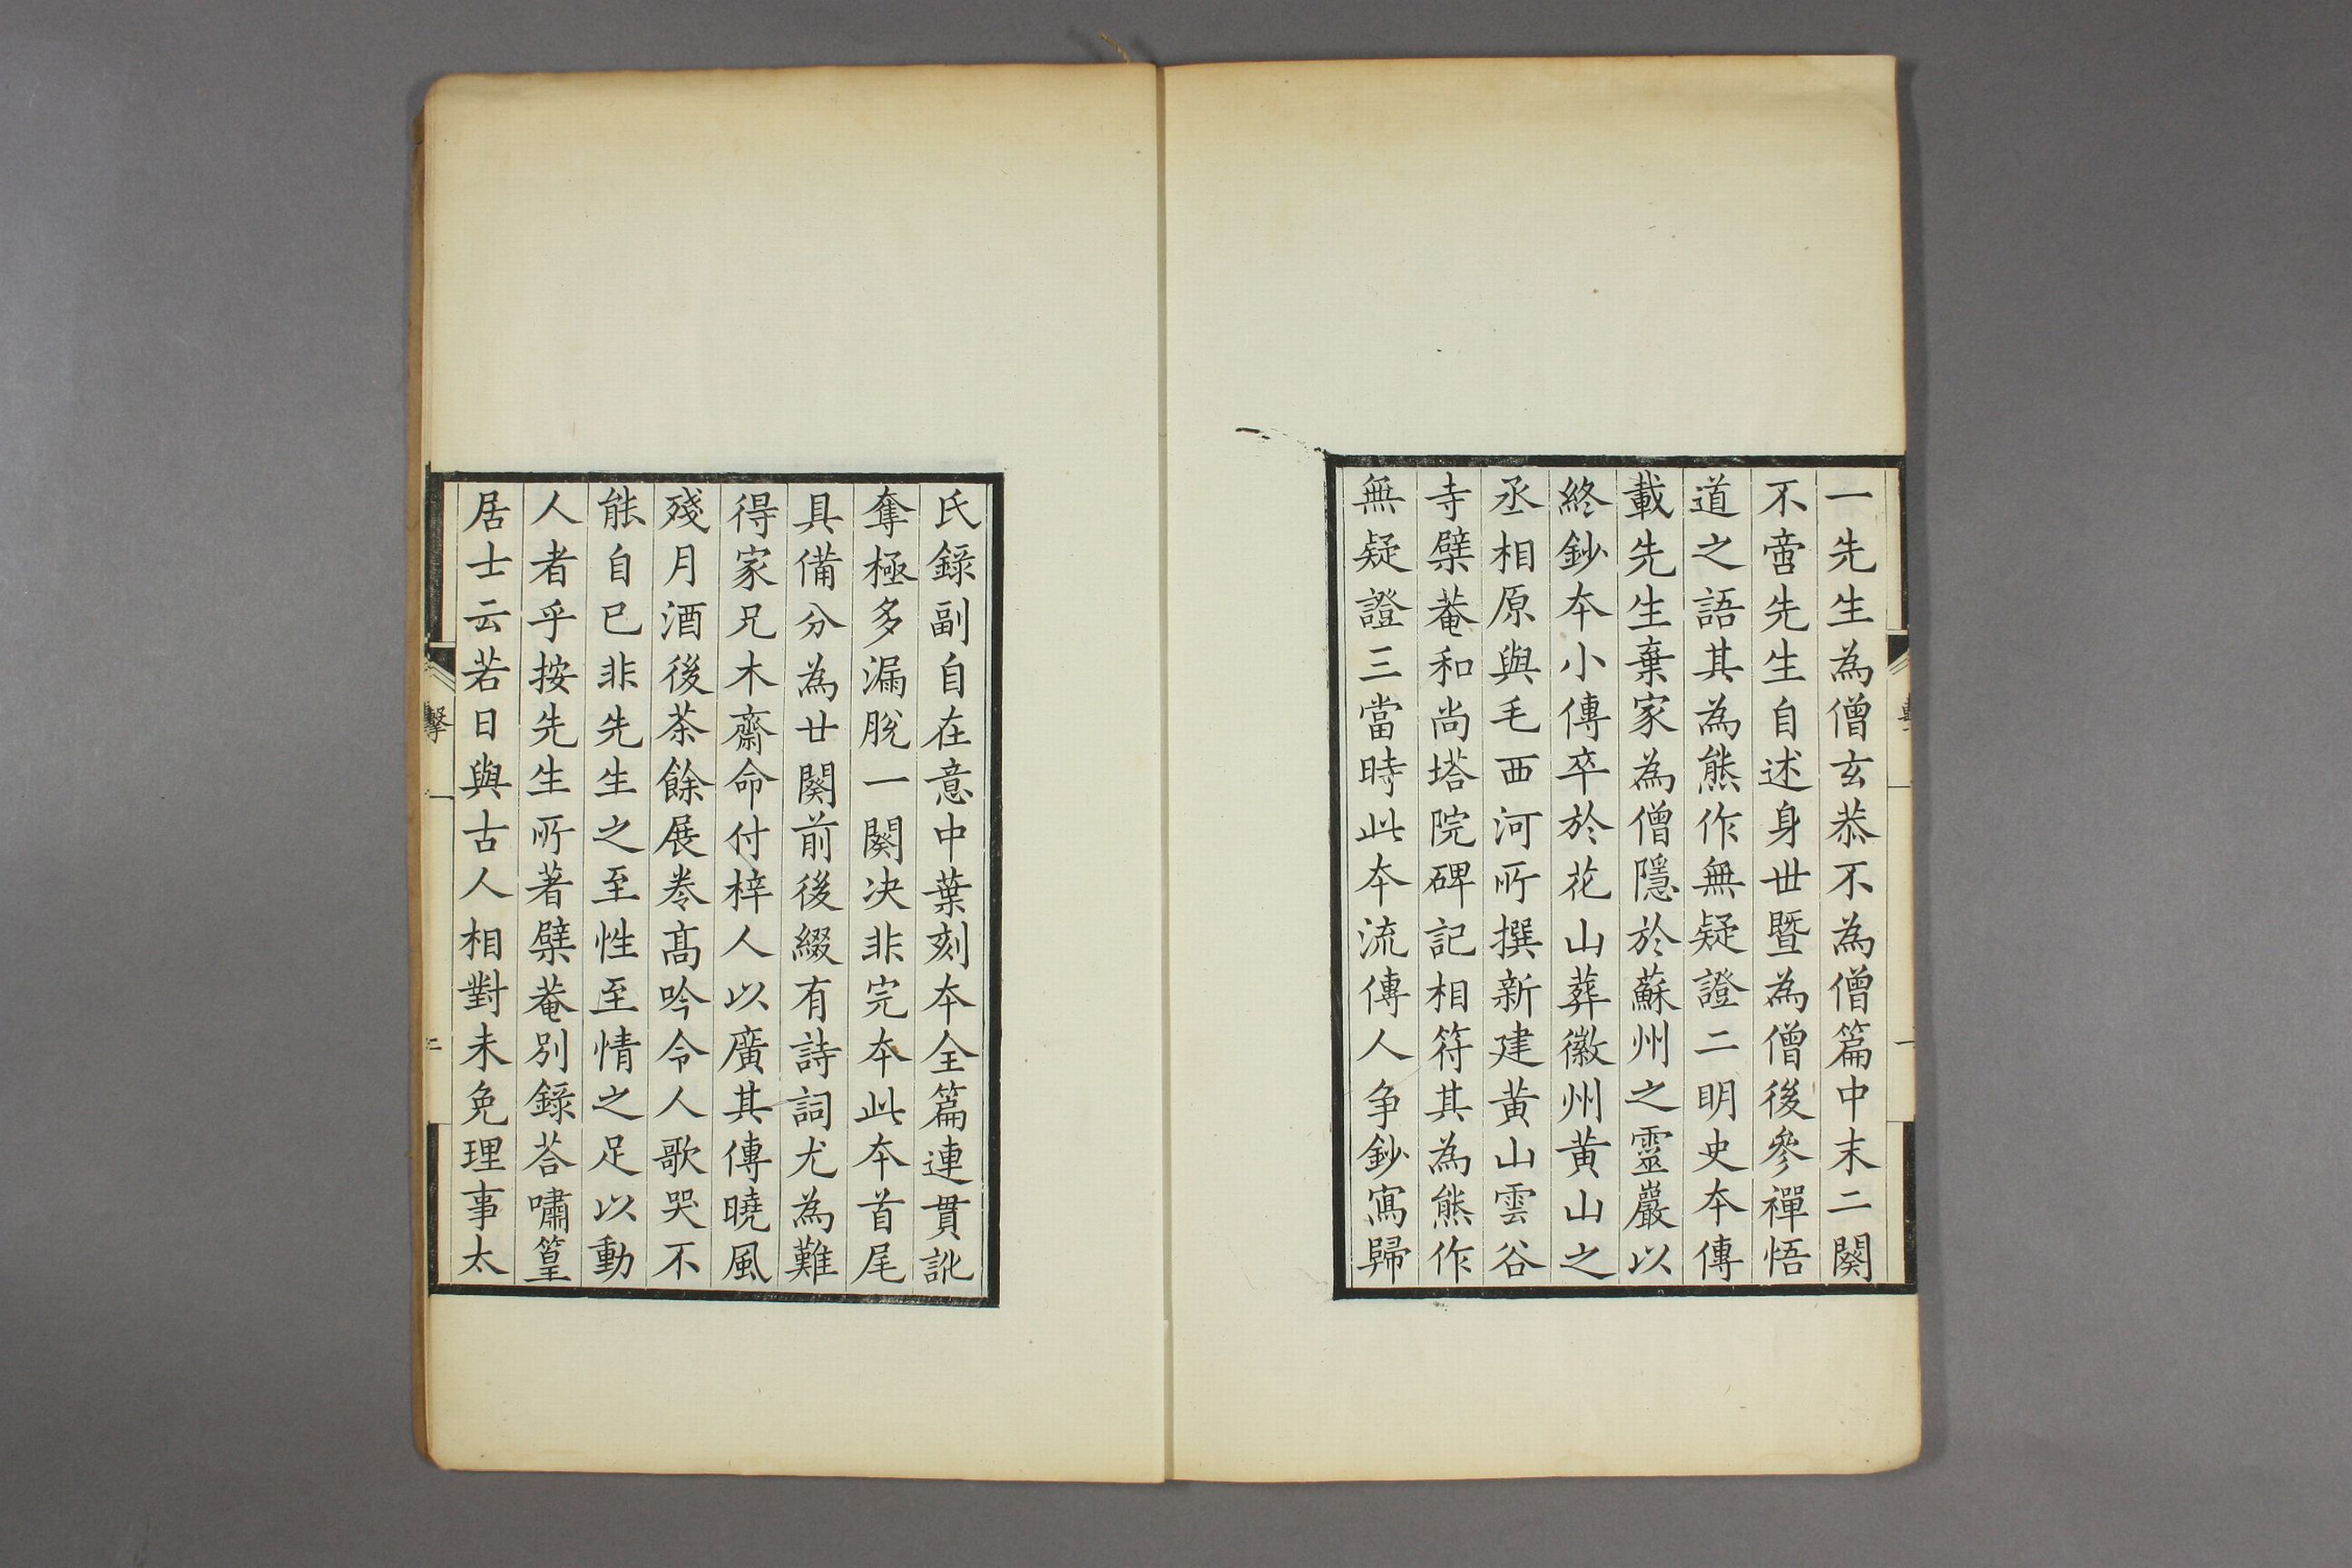 一先生為僧玄恭不為僧篇中末二闋
不啻先生自述身世暨為僧後參禪悟
道之語其為熊作無疑證二明史本傳
載先生棄家為僧隱於蘇州之靈巖以
終鈔本小傳卒於花山葬徽州黃山之
丞相原與毛西河所撰新建黃山雲谷
寺檗菴和尚塔院碑記相符其為熊作
無疑證三當時此本流傳人爭鈔寫歸
氏錄副自在意中葉刻本全篇連貫訛
奪極多漏脫一闋決非完本此本首尾
具備分為廿闋前後綴有詩詞尤為難
得家兄木齋命付梓人以廣其傳曉風
殘月酒後茶餘展卷高吟令人歌哭不
能自已非先生之至性至情之足以動
人者乎按先生所著檗菴別錄荅嘯篁
居士云若日與古人相對未免理事太
擊
二
一